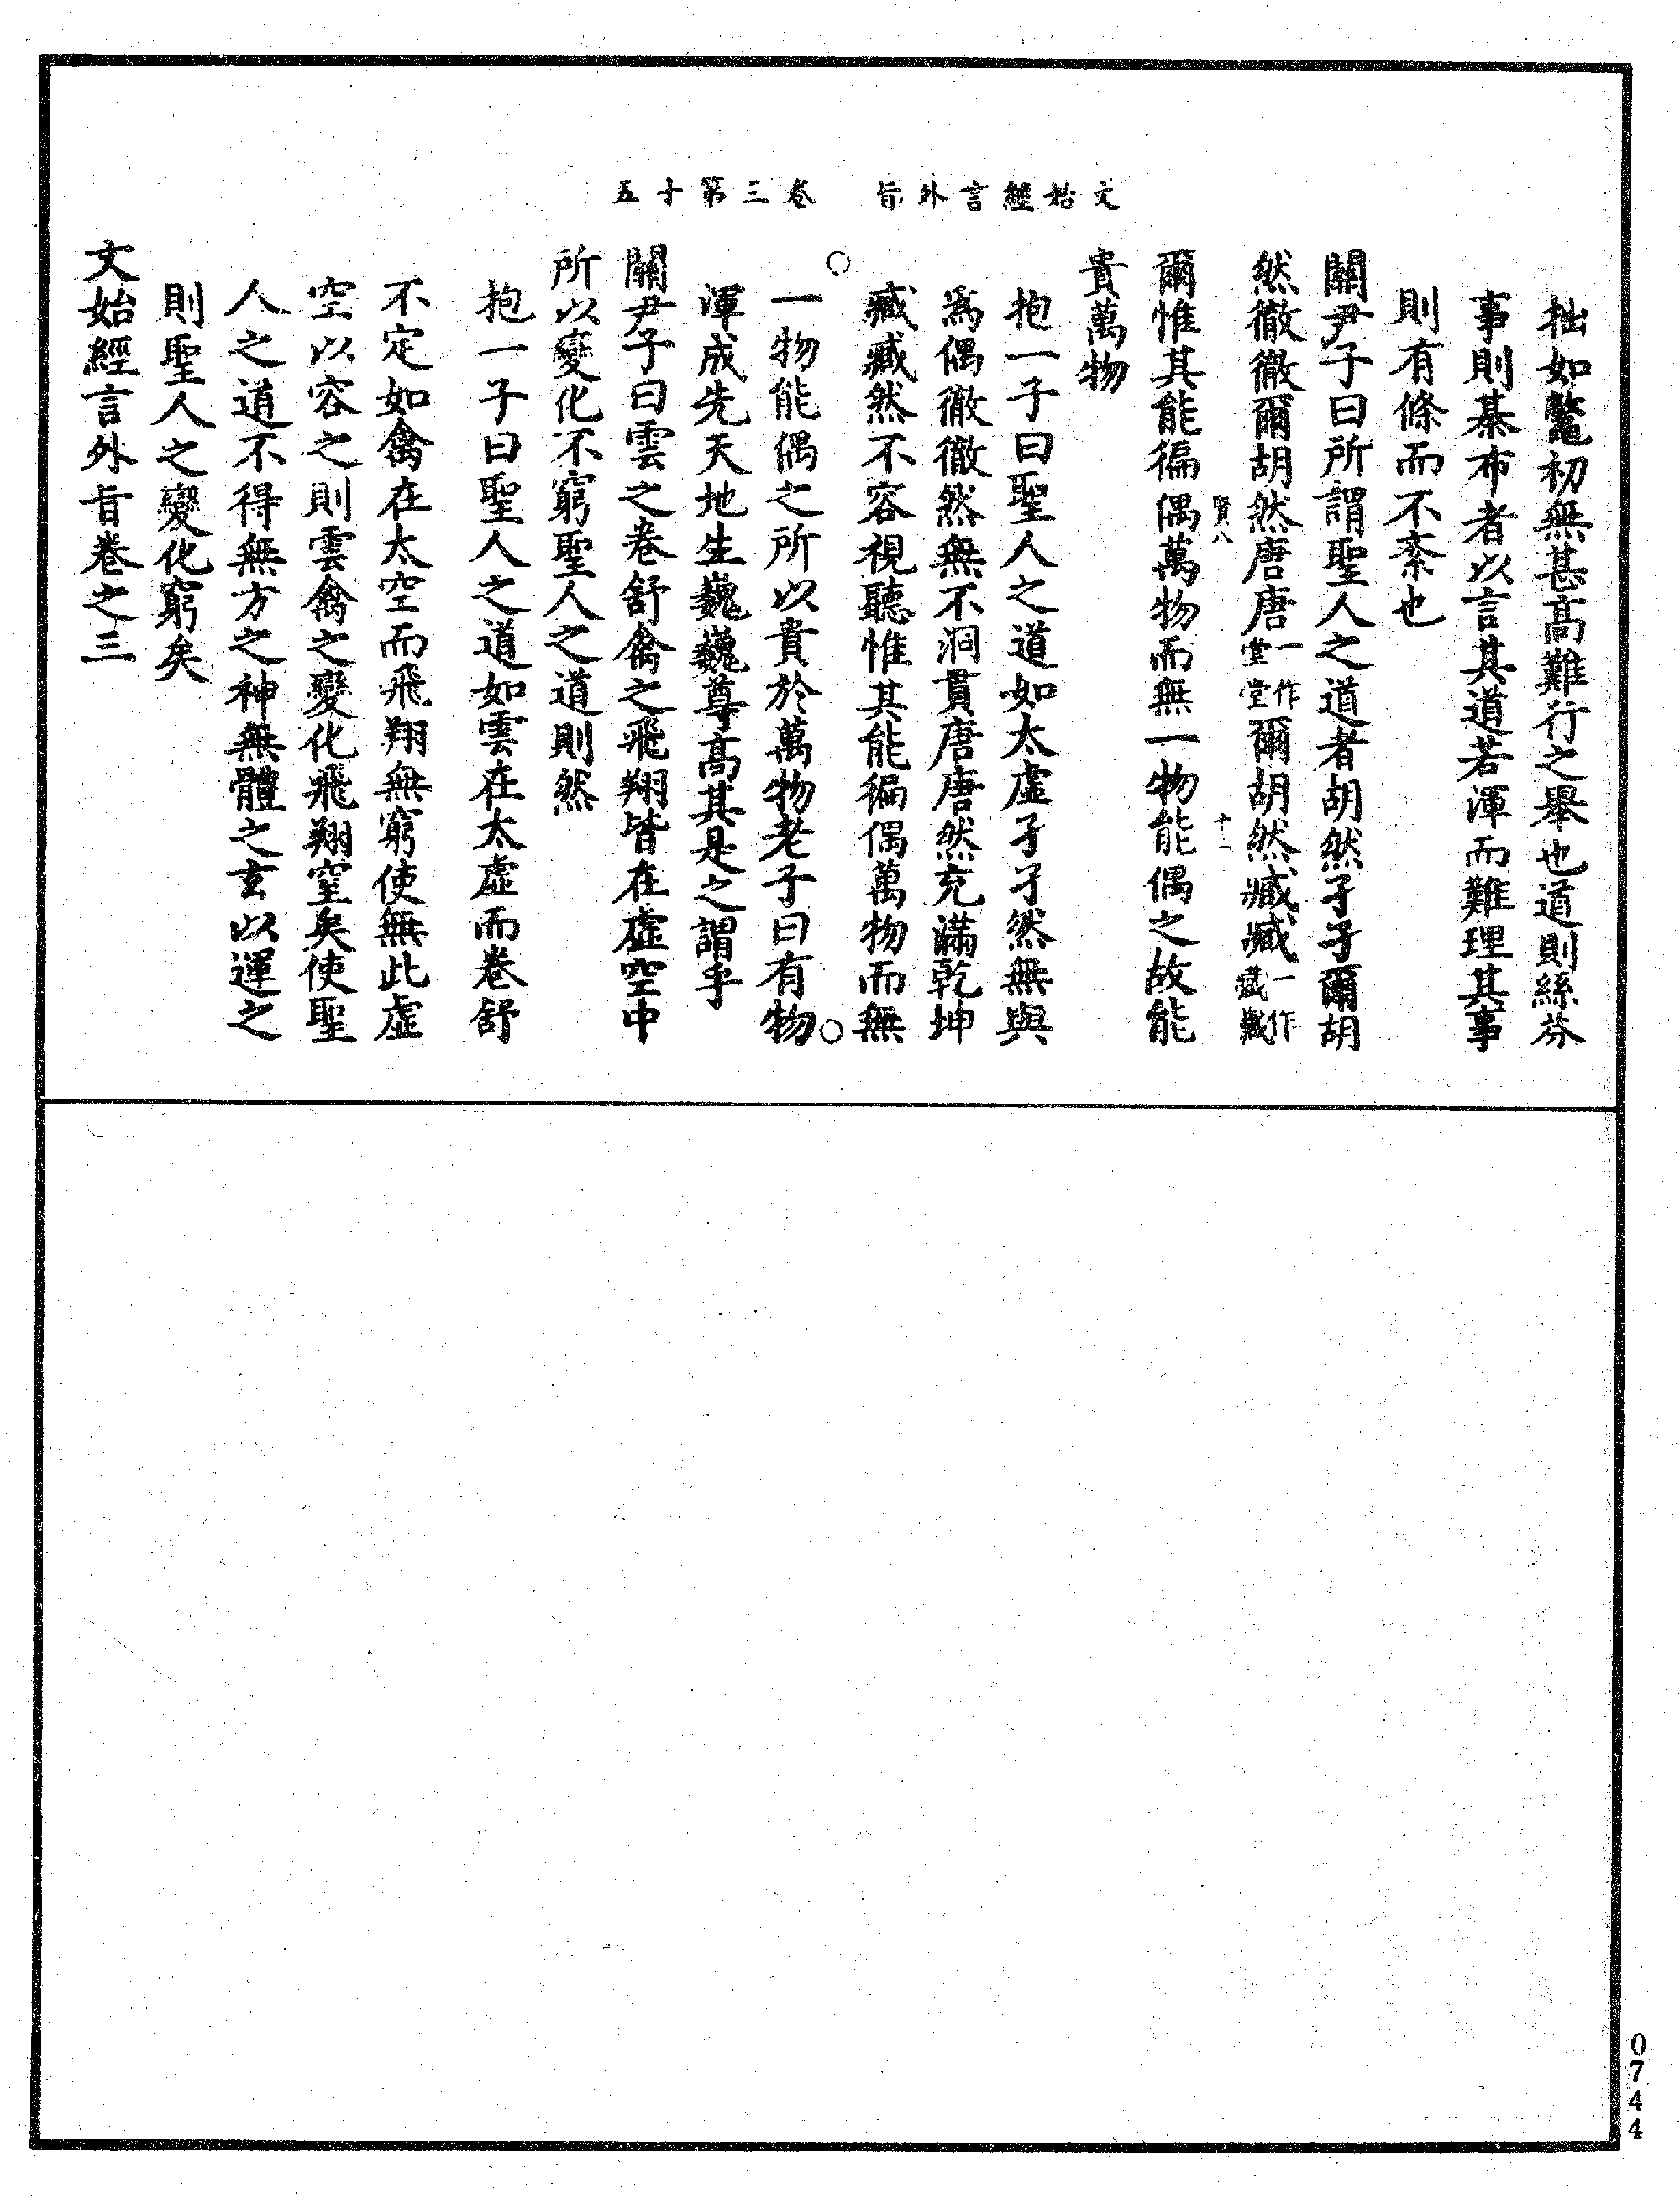 文始經言外旨　卷三第十五
拙如鼈初無甚高難行之舉也道則絲棼
事則棊布者以言其道若渾而難理其事
則有條而不紊也
關尹子曰所謂聖人之道者胡然孑孑爾胡
然徹徹爾胡然唐唐一作堂堂爾胡然臧臧一作藏藏
賢八　十一
爾惟其能徧偶萬物而無一物能偶之故能
貴萬物
抱一子曰聖人之道如太虛孑孑然無與
爲偶徹徹然無不洞貫唐唐然充滿乾坤
臧臧然不容視聽惟其能徧偶萬物而無
一物能偶之所以貴於萬物老子曰有物
渾成先天地生巍巍尊高其是之謂乎
關尹子曰雲之卷舒禽之飛翔皆在虛空中
所以變化不窮聖人之道則然
抱一子曰聖人之道如雲在太虛而卷舒
不定如禽在太空而飛翔無窮使無此虛
空以容之則雲禽之變化飛翔窒矣使聖
人之道不得無方之神無體之玄以運之
則聖人之變化窮矣
文始經言外旨卷之三
0744